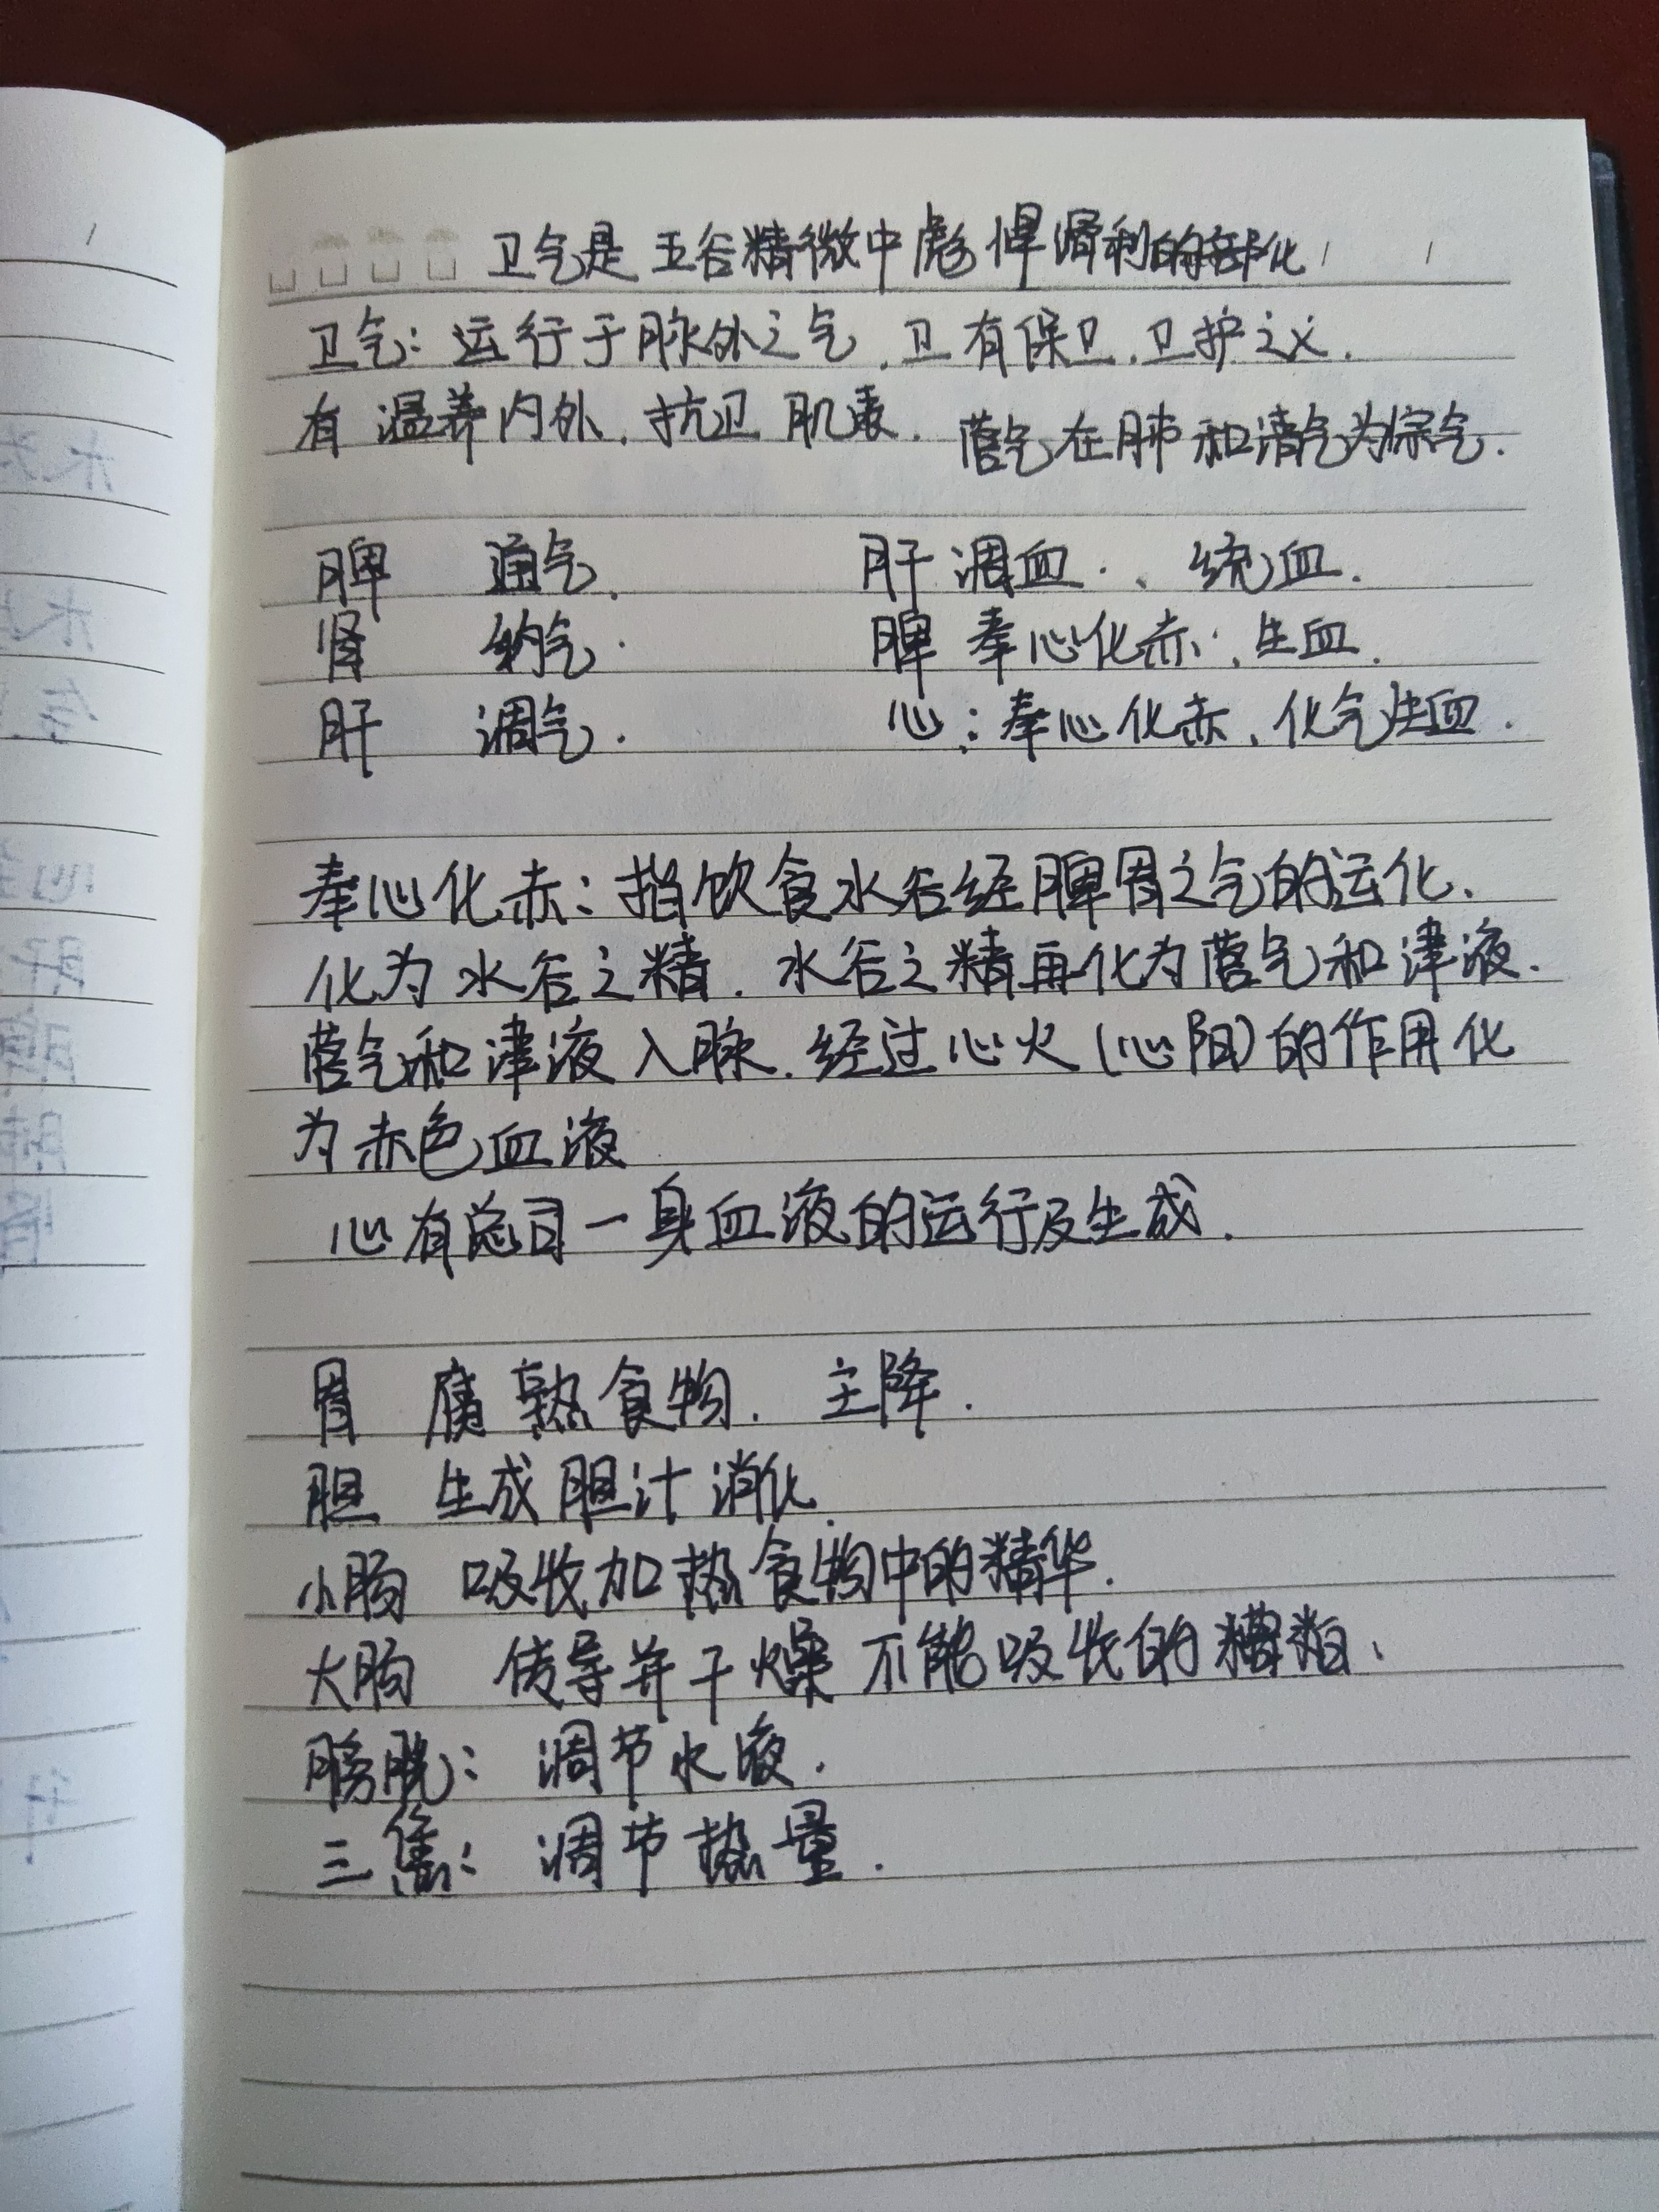 卫气是五谷精微中彪悍滑利的部化
卫气：运行于脉外之气，卫有保卫，卫护之义．
有温养内外，抗卫肌表．营气在肺和清气为综气．
脾 通气． 肝调血．、统血．
肾 纳气． 脾奉心化赤，生血．
肝 调气． 心：奉心化赤、化气生血．
奉心化赤：指饮食水谷经脾胃之气的运化．
化为水谷之精．水谷之精再化为营气和津液．
营气和津液入脉．经过心火(心阳)的作用化
为赤色血液
心有总司一身血液的运行及生成．
胃 腐熟食物．主降．
胆 生成胆汁消化．
小肠 吸收加热食物中的精华．
大肠 传导并干燥不能吸收的糟粕、
膀胱：调节水液．
三焦：调节热量．